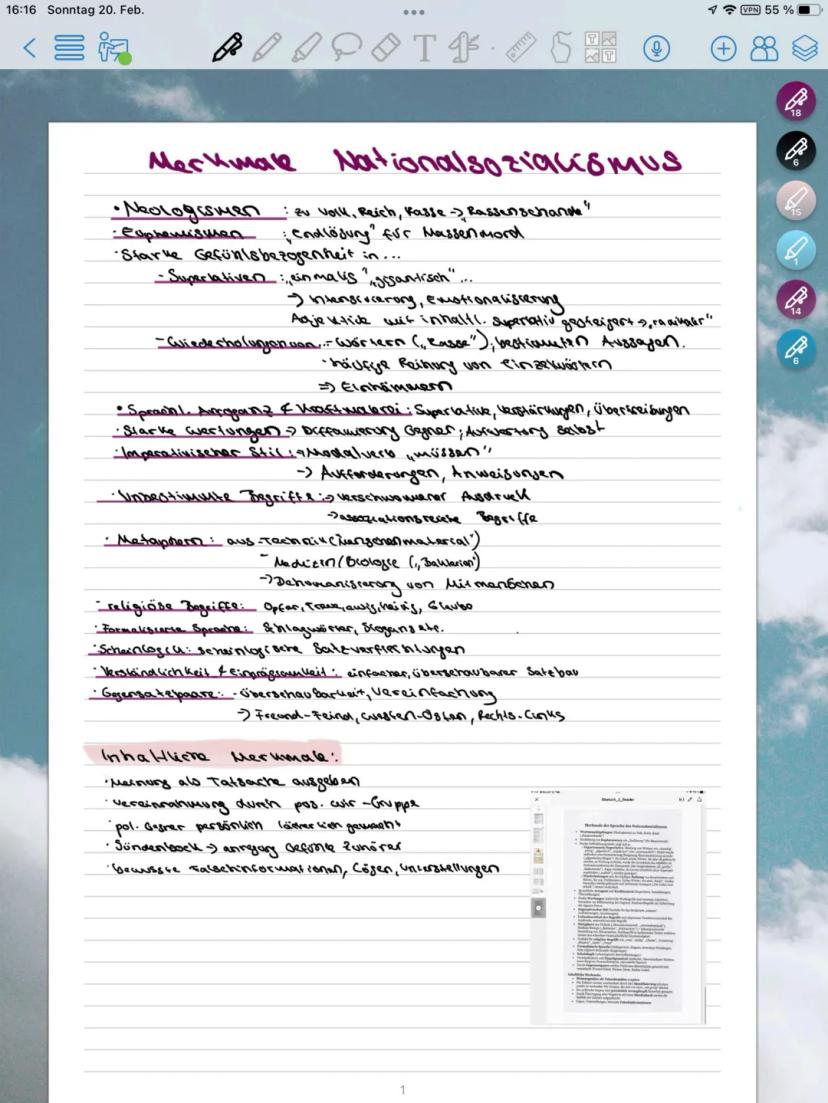 16:16 Sonntag 20. Feb.
VPN 55 %
T
18
6
15
1
14
6
Merkmale Nationalsozialismus
· Neologismen : zu Volk, Reich, Rasse -> „Rassenschande"
· Euphemismen : „Endlösung" für Massenmord
· Starke Gefühlsbezogenheit in...
- Superlativen : „einmalig" „gigantisch"...
-> Intensivierung, Emotionalisierung
Adjektive mit inhaltl. Superlativ gesteigert ->
- Wiederholungen von... - Wörtern („Rasse"), bestimmten Aussagen.
· häufige Reihung von Einzelwörtern
=> Einhämmern
· Sprachl. Arroganz & Kraftmalerei : Superlative, Verstärkungen, Übertreibungen
· Starke Wertungen -> Diffamierung Gegner; Aufwertung selbst
· Imperativischer Stil: -> Modalverb „müssen"
-> Aufforderungen, Anweisungen
· Unbestimmte Begriffe: -> verschwommener Ausdruck
-> assoziationsreiche Begriffe
· Metaphern: aus - Technik („Menschenmaterial")
- Medizin/Biologie („Bakterien")
-> Dehumanisierung von Mitmenschen
· religiöse Begriffe: Opfer, Treue, ewig, heilig, Glaube
· Formalisierte Sprache: Schlagwörter, Slogans etc.
· Scheinlogik: scheinlogische Satzverflechtungen
· Verständlichkeit & Einprägsamkeit: einfacher, überschaubarer Satzbau
· Gegensatzpaare: - Überschaubarkeit, Vereinfachung
-> Freund-Feind, Westen-Osten, Rechts-Links
Inhaltliche Merkmale:
· Meinung als Tatsache ausgeben
· Vereinnahmung durch pos. Wir-Gruppe
· pol. Gegner persönlich lächerlich gemacht
· Sündenbock -> anregung Gefühle Zuhörer
· bewusste Falschinformationen, Lügen, Unterstellungen
Merkmale der Sprache des Nationalsozialismus
1